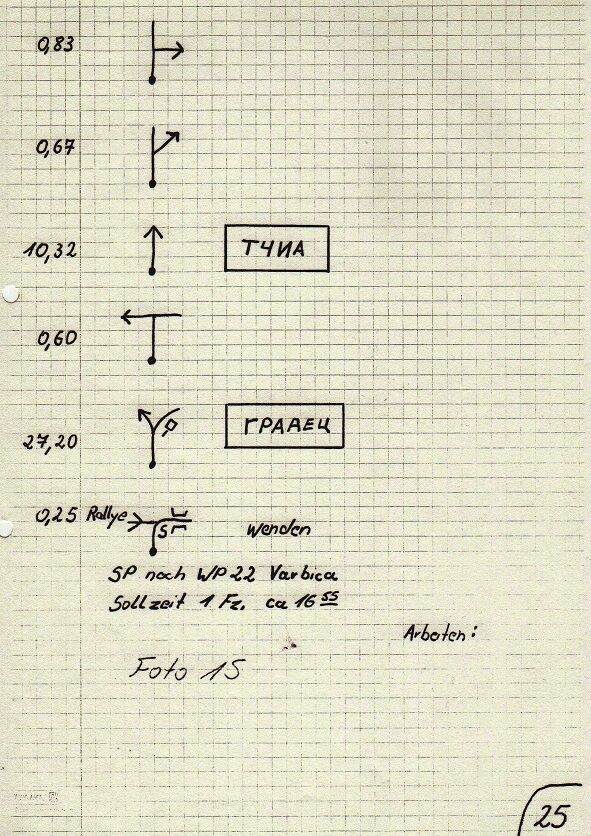 0,83
0,67
10,32 ТЧИА
0,60
27,20 ГРАДЕЦ
0,25 Rallye S Wenden
SP nach WP 22 Varbica
Sollzeit 1 Fz. ca 16 55
Arbeiten:
Foto 15
25